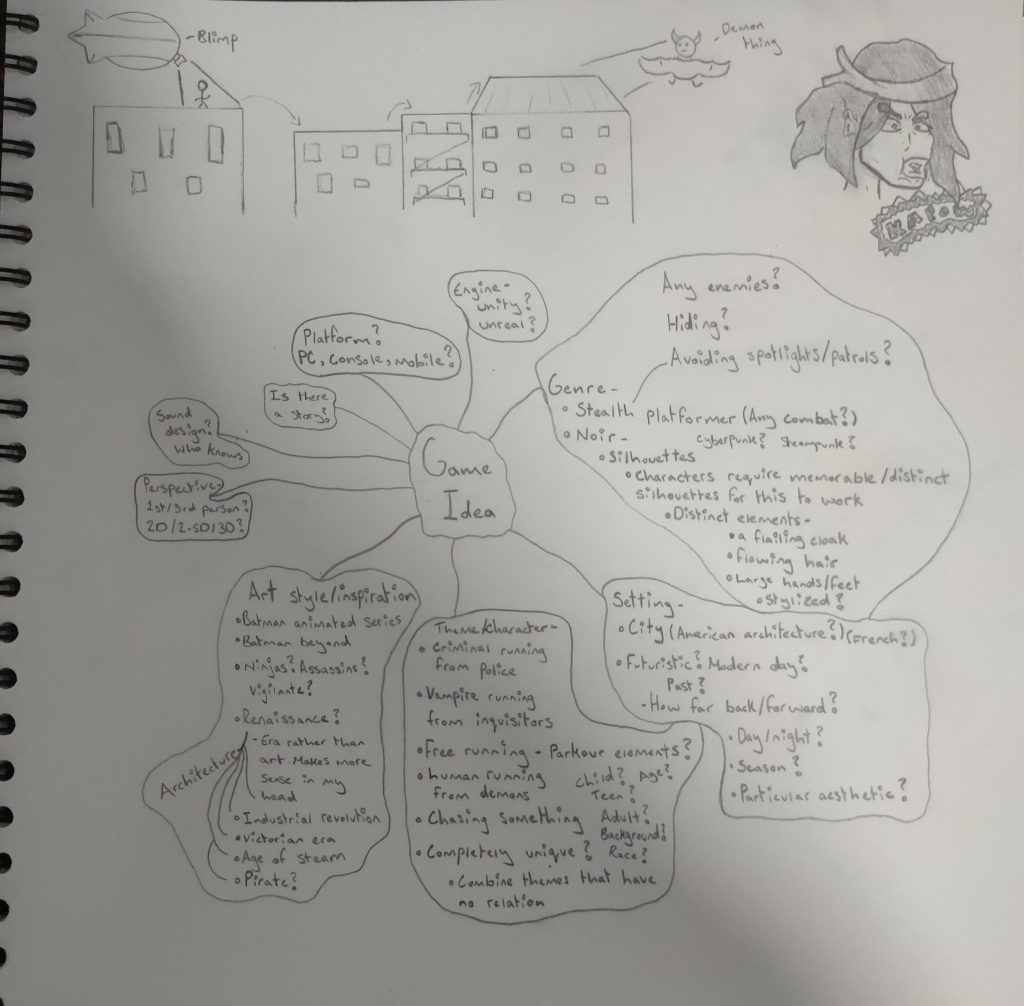 -Blimp
-Demon
thing
KAPOW
Engine-
unity?
unreal?
Platform?
PC, Console, mobile?
Is there
a story?
Sound
design?
Who knows
Perspective-
1st/3rd person?
2D/2.5D/3D?
Game
Idea
Any enemies?
Hiding?
Avoiding spotlights/patrols?
Genre-
•Stealth platformer (Any combat?)
•Noir- Cyberpunk? Steampunk?
•Silhouettes
•Characters require memorable/distinct
silhouettes for this to work
•Distinct elements-
•a flailing cloak
•flowing hair
•Large hands/feet
•Stylized?
Art style/inspiration
•Batman animated series
•Batman beyond
•Ninjas? Assassins?
Vigilante?
•Renaissance?
-Era rather than
art. Makes more
sense in my
head
Architecture
•Industrial revolution
•Victorian era
•Age of steam
•Pirate?
Theme/Character-
•Criminal running
from police
•Vampire running
from inquisitors
•Free running - Parkour elements?
•human running
from demons
Child? Age?
Teen?
Adult?
Background?
Race?
•Chasing something
•Completely unique?
•Combine themes that have
no relation
Setting-
•City (American architecture?) (French?)
•Futuristic? Modern day?
Past?
-How far back/forward?
•Day/night?
•Season?
•Particular aesthetic?